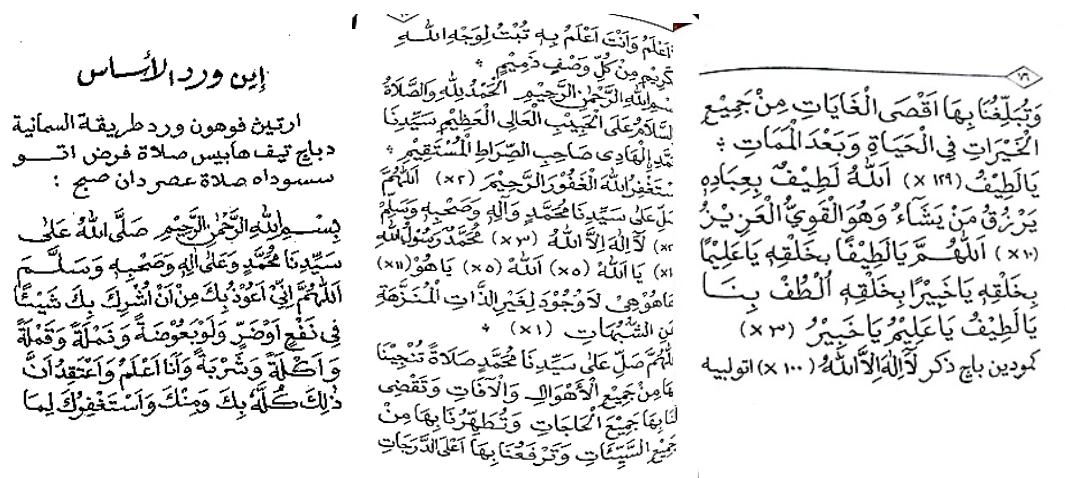 اين ورد الأساس
ارتيڽ فوهون ورد طريقة السمانية
دباچ تيف هابيس صلاة فرض اتو
سسوداه صلاة عصر دان صبح :
بِسْمِ اللهِ الرَّحْمٰنِ الرَّحِيْمِ صَلَّى اللهُ عَلٰى
سَيِّدِنَا مُحَمَّدٍ وَعَلٰى اٰلِهٖ وَصَحْبِهٖ وَسَلَّمَ
اَللّٰهُمَّ اِنِّيْ اَعُوْذُ بِكَ مِنْ اَنْ اُشْرِكَ بِكَ شَيْئًا
فِيْ نَفْعٍ اَوْضَرٍّ وَلَوْ بَعُوْضَةً وَنَمْلَةً وَقَمْلَةً
وَاَكْلَةً وَشَرْبَةً وَاَنَا اَعْلَمُ وَاَعْتَقِدُ اَنَّ
ذٰلِكَ كُلَّهُ بِكَ وَمِنْكَ وَاَسْتَغْفِرُكَ لِمَا
اَعْلَمُ وَاَنْتَ اَعْلَمُ بِهٖ تُبْتُ لِوَجْهِ اللهِ
كَرِيْمِ مِنْ كُلِّ وَصْفٍ ذَمِيْمٍ
سْمِ اللهِ الرَّحْمٰنِ الرَّحِيْمِ اَلْحَمْدُ لِلّٰهِ وَالصَّلَاةُ
السَّلَامُ عَلَى الْحَبِيْبِ الْعَالِى الْعَظِيْمِ سَيِّدِنَا
مَّدٍ الْهَادِى صَاحِبِ الصِّرَاطِ الْمُسْتَقِيْمِ
سْتَغْفِرُ اللهَ الْغَفُوْرَ الرَّحِيْمَ (x ٢) اَللّٰهُمَّ
صَلِّ عَلٰى سَيِّدِنَا مُحَمَّدٍ وَاٰلِهٖ وَصَحْبِهٖ وَسَلِّمْ
(x٢ لَآ اِلٰهَ اِلاَّ اللهُ (x ٣) مُحَمَّدٌ رَسُوْلُ اللهِ
(x١ يَا اَللهُ (x ٥) اَللهُ (x ٥) يَاهُوْ (x ١١)
مَاهُوْهِىَ لَاوُجُوْدَ لِغَيْرِ الذَّاتِ الْمُنَزَّهَةِ
مِنَ الشُّبُهَاتِ (x ١)
للّٰهُمَّ صَلِّ عَلٰى سَيِّدِنَا مُحَمَّدٍ صَلَاةً تُنْجِيْنَا
هَامِنْ جَمِيْعِ الْأَهْوَالِ وَالْآفَاتِ وَتَقْضِى
لَنَا بِهَا جَمِيْعَ الْحَاجَاتِ وَتُطَهِّرُنَا بِهَا مِنْ
جَمِيْعِ السَّيِّئَاتِ وَتَرْفَعُنَا بِهَا اَعْلَى الدَّرَجَاتِ
٧٩
وَتُبَلِّغُنَا بِهَا اَقْصَى الْغَايَاتِ مِنْ جَمِيْعِ
الْخَيْرَاتِ فِى الْحَيَاةِ وَبَعْدَ الْمَمَاتِ
يَالَطِيْفُ (x ١٢٩) اَللهُ لَطِيْفٌ بِعِبَادِهٖ
يَرْزُقُ مَنْ يَشَآءُ وَهُوَ الْقَوِيُّ الْعَزِيْزُ
(x ١٠) اَللّٰهُمَّ يَالَطِيْفًا بِخَلْقِهٖ يَاعَلِيْمًا
بِخَلْقِهٖ يَاخَبِيْرًا بِخَلْقِهٖ اُلْطُفْ بِنَا
يَالَطِيْفُ يَاعَلِيْمُ يَاخَبِيْرُ (x ٣)
كمودين باچ ذكر لَآ اِلٰهَ اِلاَّ اللهُ (x ١٠٠) اتولبيه